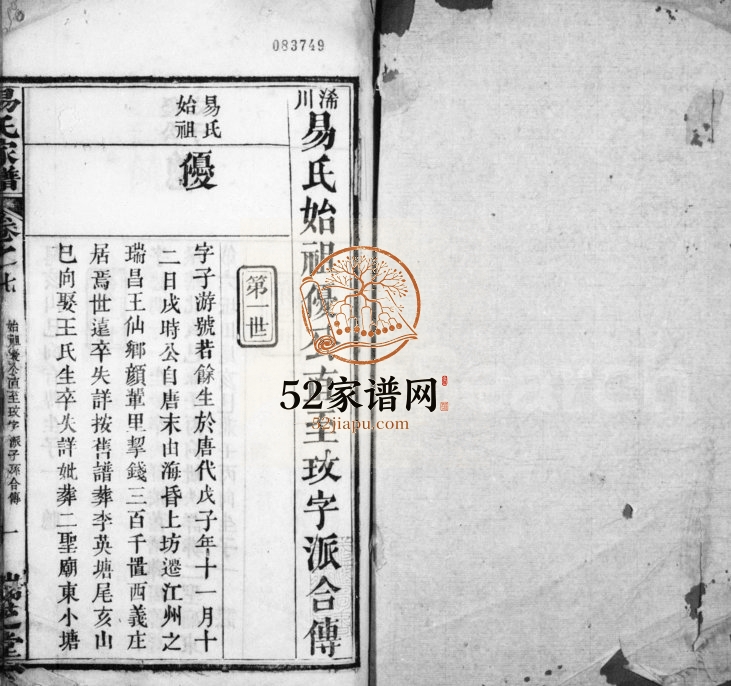 083749
浠川
易氏始祖優公直至玫字派合傳
第一世
易氏始祖
優
字子游號若餘生於唐代戊子年十一月十
二日戌時公自唐末由海昏上坊遷江州之
瑞昌王仙鄉顏輋里挈錢三百千置西義庄
居焉世遠卒失詳按舊譜葬李英塘尾亥山
巳向娶王氏生卒失詳妣葬二聖廟東小塘
易氏家譜
卷之七
始祖優公直至玫字派子孫合傳
一
52家谱网
52jiapu.com